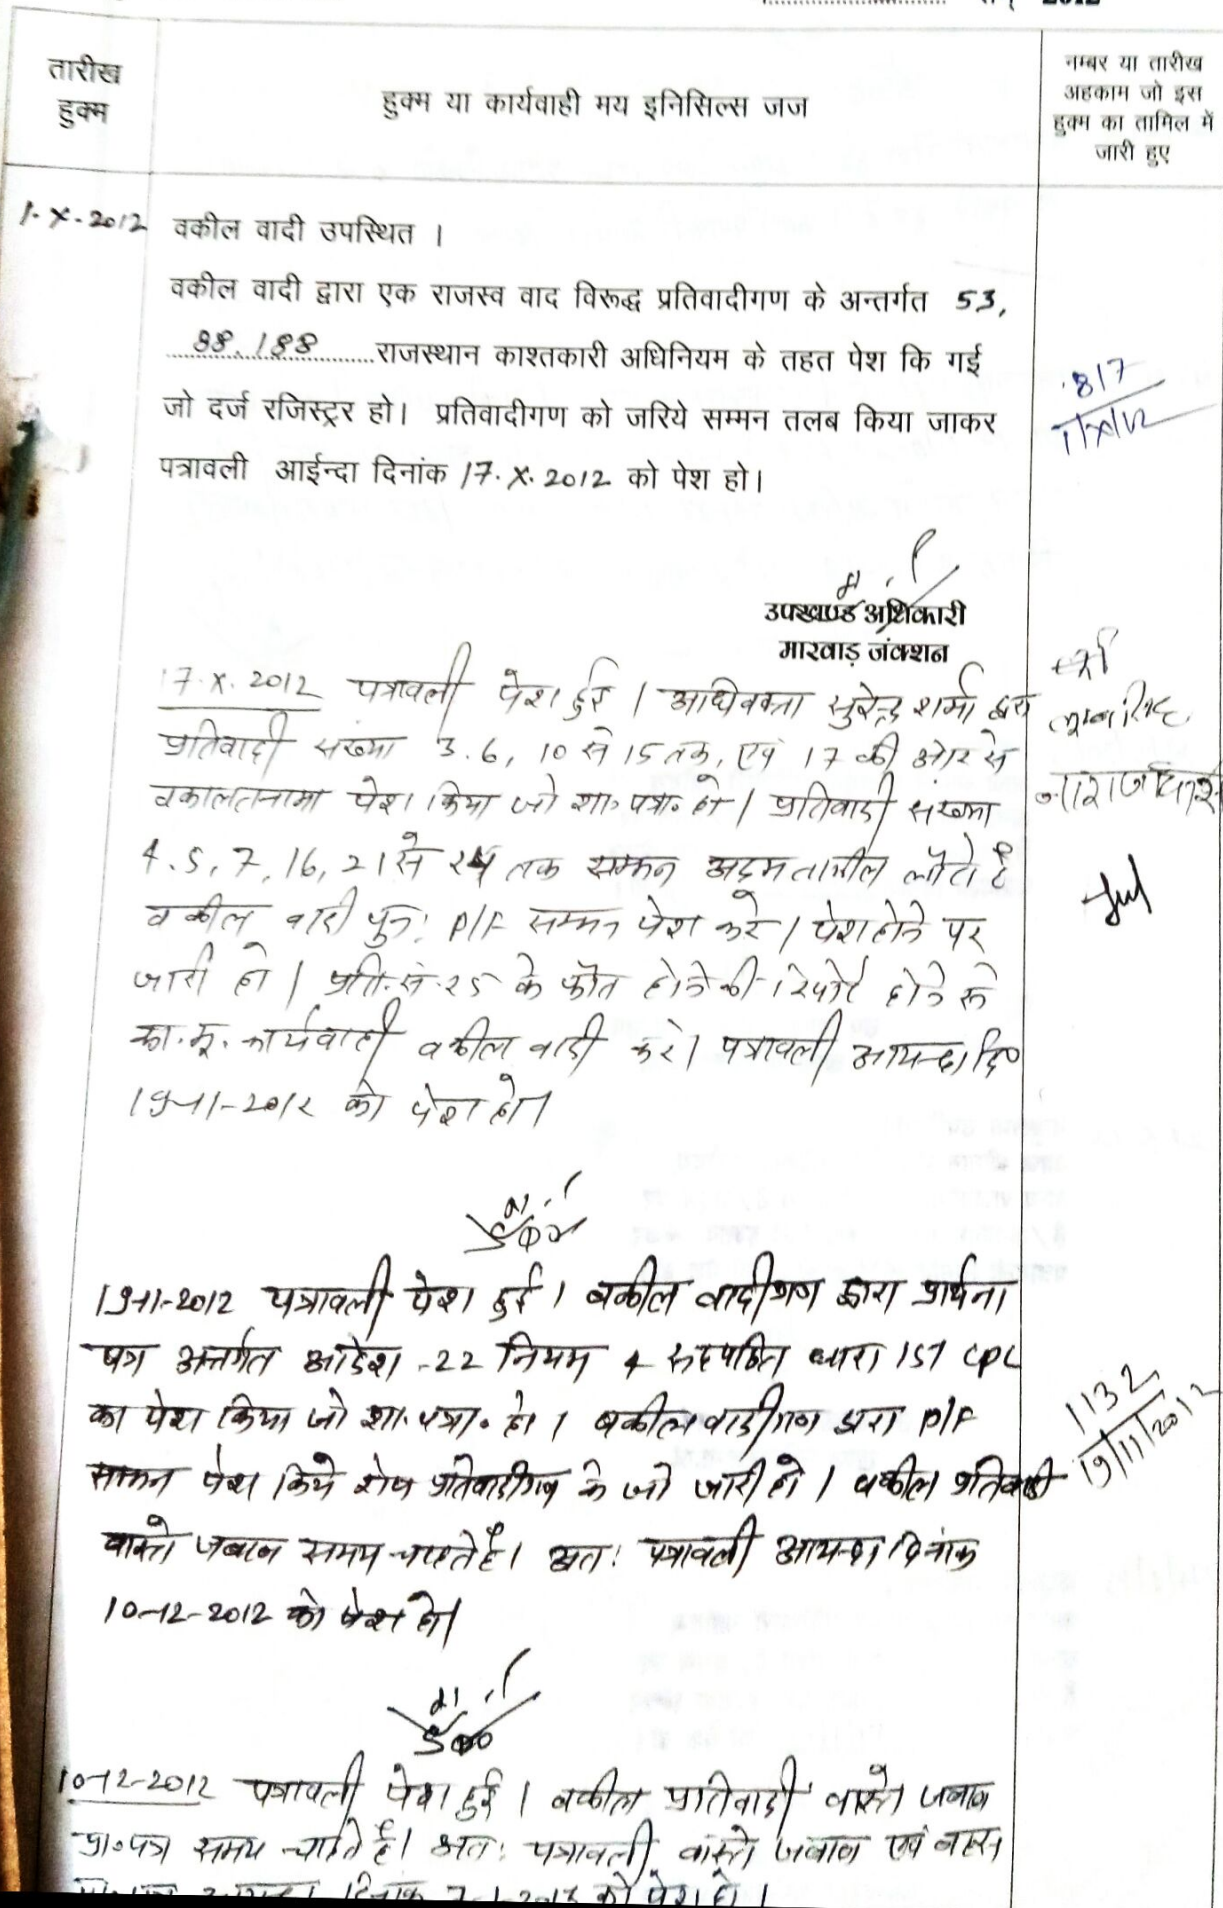 2012
तारीख
हुक्म
हुक्म या कार्यवाही मय इनिसिल्स जज
नम्बर या तारीख
अहकाम जो इस
हुक्म का तामिल में
जारी हुए
1.X.2012 वकील वादी उपस्थित ।
वकील वादी द्वारा एक राजस्व वाद विरूद्ध प्रतिवादीगण के अन्तर्गत 53,
88.188 राजस्थान काश्तकारी अधिनियम के तहत पेश कि गई
जो दर्ज रजिस्ट्रर हो। प्रतिवादीगण को जरिये सम्मन तलब किया जाकर
पत्रावली आईन्दा दिनांक 17.X.2012 को पेश हो।
817
1/X/12
उपखण्ड अधिकारी
मारवाड़ जंक्शन
17.X.2012 पत्रावली पेश हुई । अधिवक्ता सुरेन्द्र शर्मा द्वारा
प्रतिवादी संख्या 3.6, 10 से 15 तक, एवं 17 की ओर से
वकालतनामा पेश किया जो शा. पत्रा. हो । प्रतिवादी संख्या
4.5, 7, 16, 21 से 24 तक सम्मन अदमतामील लौटे है
वकील वादी पुन: P/F सम्मन पेश करे । पेश होने पर
जारी हो । प्रति.सं.25 के फौत होने की रिपोर्ट होने से
का.मू. कार्यवाही वकील वादी करे। पत्रावली आयन्दा दि०
19-11-2012 को पेश हो।
19-11-2012 पत्रावली पेश हुई । वकील वादीगण द्वारा प्रार्थना
पत्र अन्तर्गत आदेश -22 नियम 4 सहपठित धारा 151 CPC
का पेश किया जो शा. पत्रा. हो । वकील वादीगण द्वारा P/F
सम्मन पेश किये शेष प्रतिवादीगण के जो जारी हो । वकील प्रतिवादी
वास्ते जवाब समय चाहते है। अत: पत्रावली आयन्दा दिनांक
10-12-2012 को पेश हो।
1132
19/11/2012
10-12-2012 पत्रावली पेश हुई । वकील प्रतिवादी वास्ते जवाब
प्रा०पत्र समय चाहते है। अत: पत्रावली वास्ते जवाब एवं बहस
दिनांक 7-1-2013 को पेश हो ।